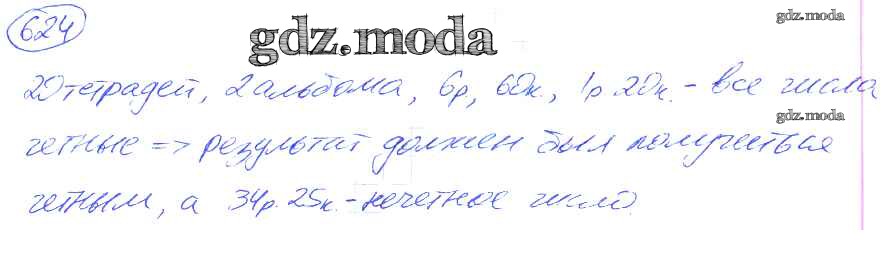 624
gdz.moda
gdz.moda
20 тетрадей, 2 альбома, 6р, 60к., 1р 20к. - все числа
gdz.moda
четные => результат должен был получиться
четным, а 34р. 25к. - нечетное число.